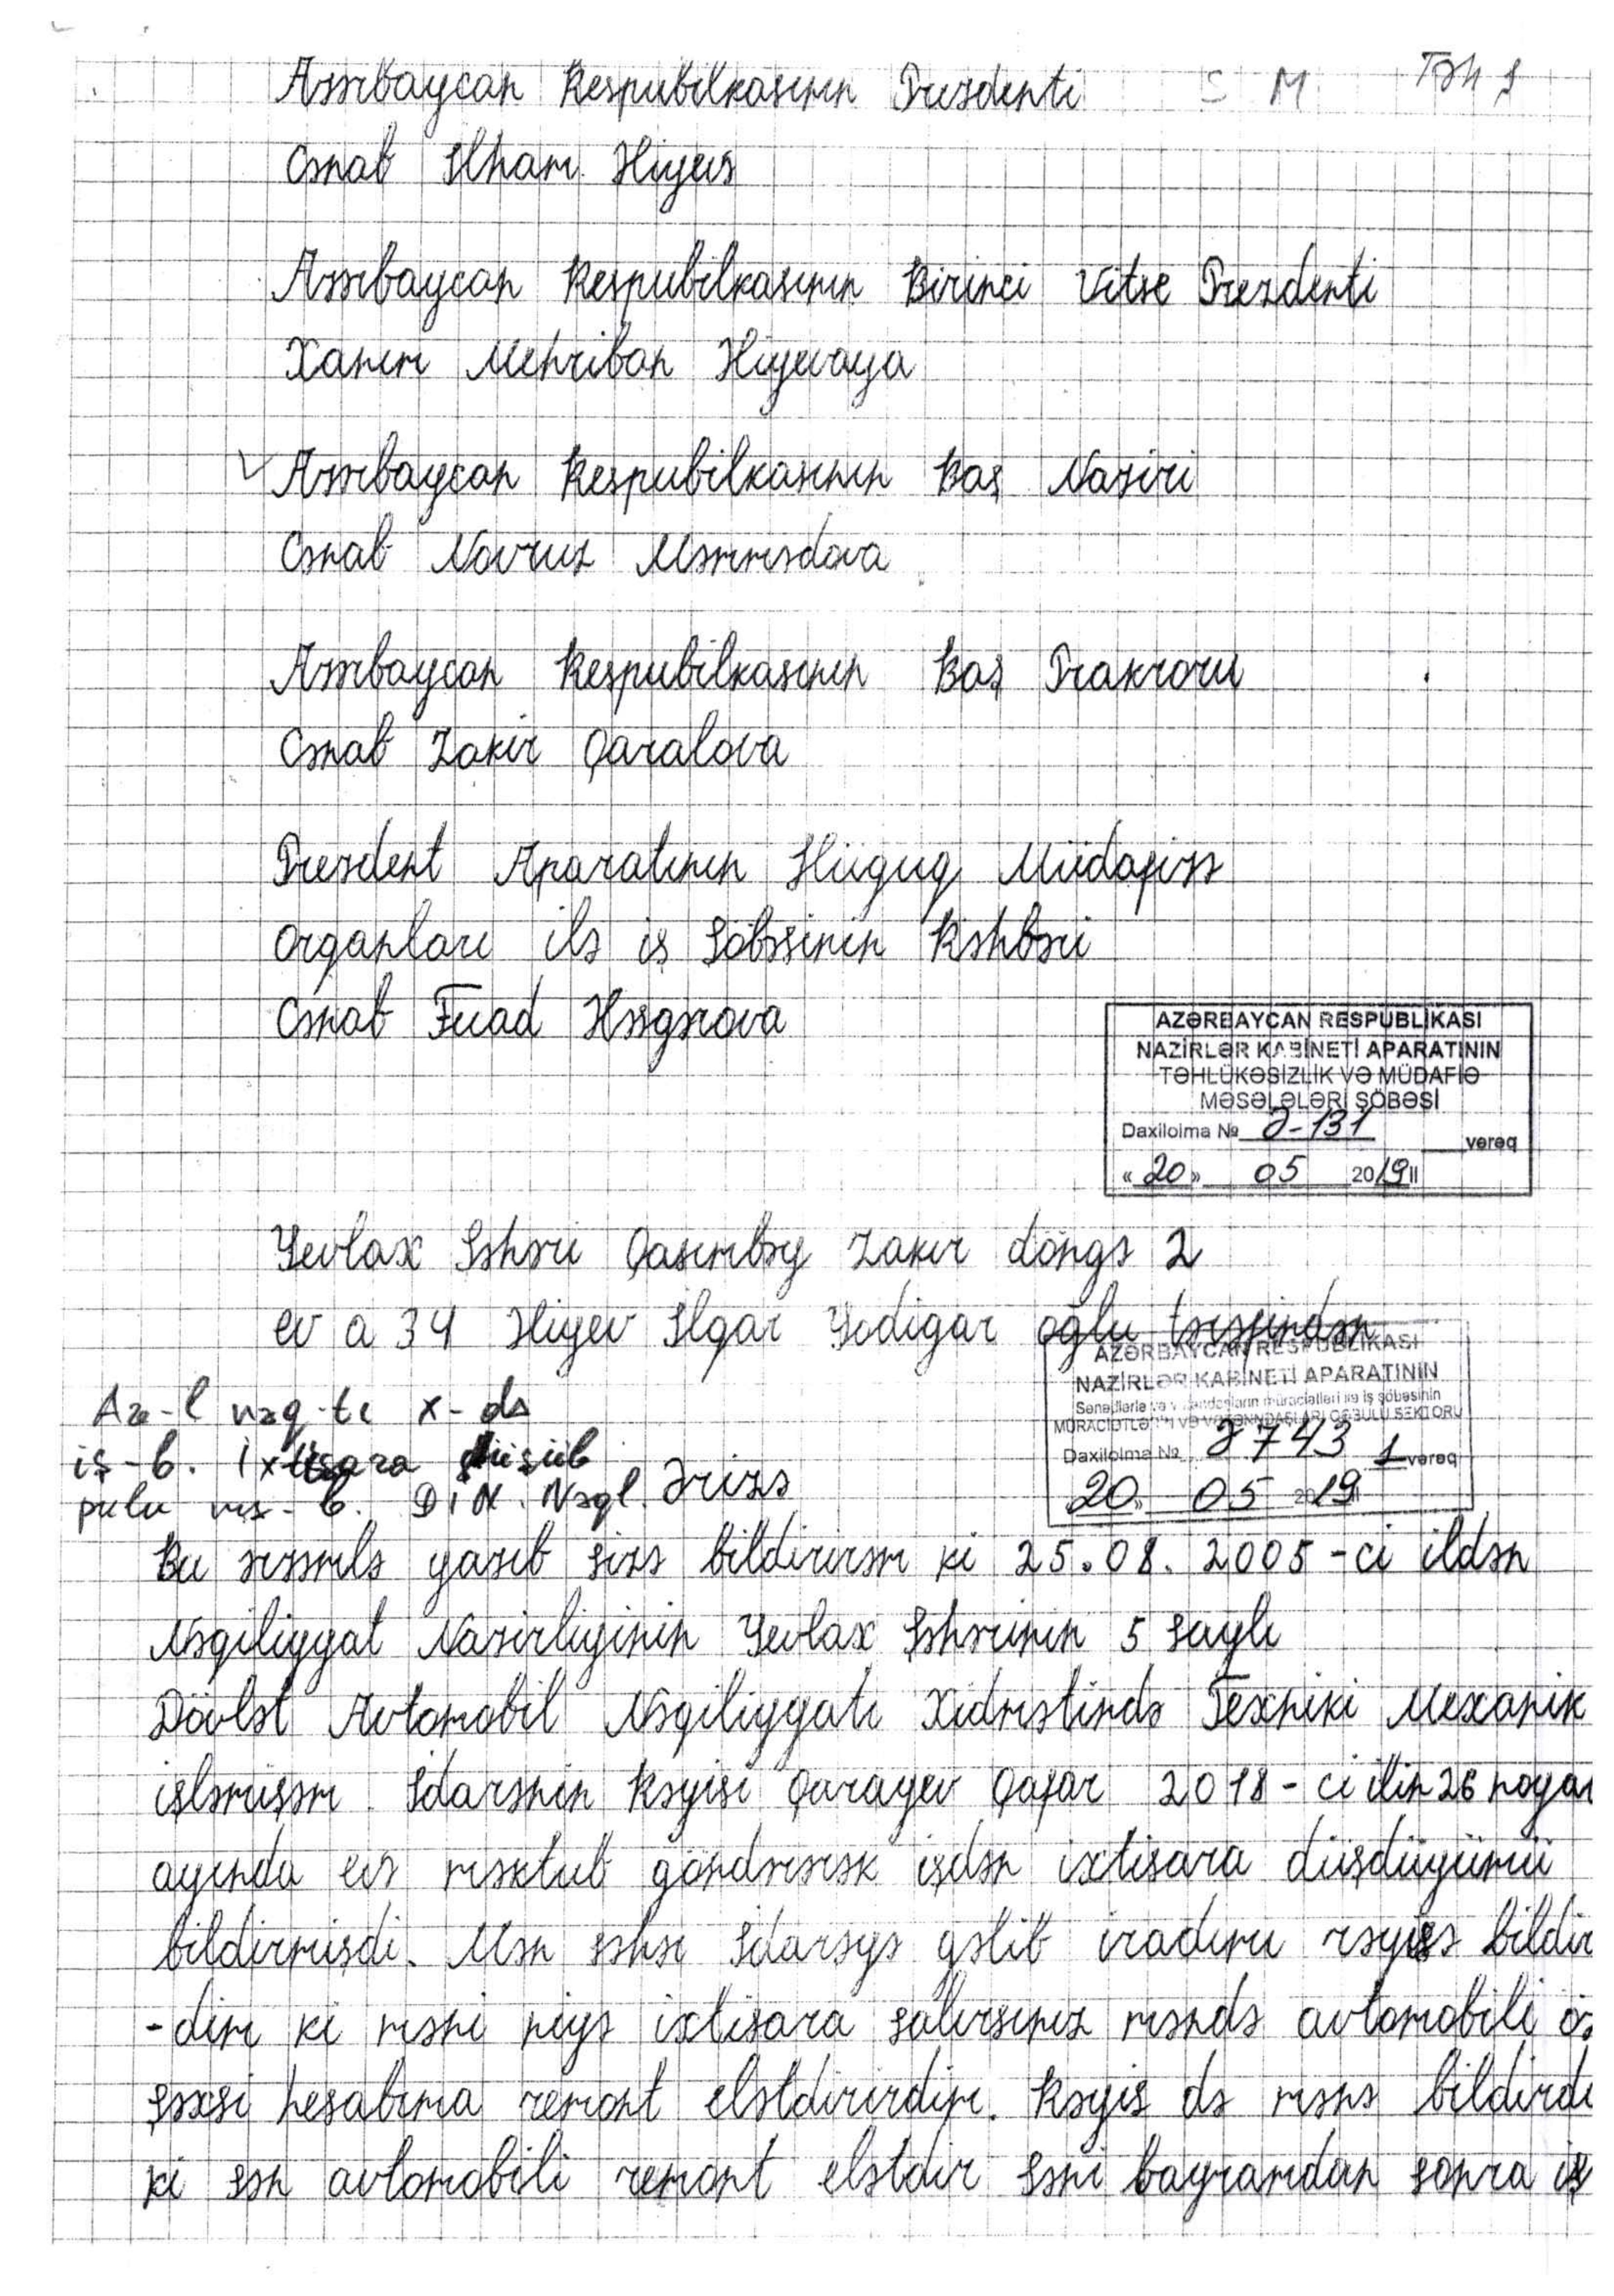 Azərbaycan Respubilkasının Prezdenti S M Təh ş
Cənab İlham Əliyevə
Azərbaycan Respubilkasının Birinci Vitse Prezdenti
Xanım Mehriban Əliyevaya
Azərbaycan Respubilkasının Baş Naziri
Cənab Novruz Məmmədova
Azərbaycan Respubilkasının Baş Prakroru
Cənab Zakir Qaralova
Prezdent Aparatının Hüquq Müdafizə
organları ilə iş Şöbəsinin Rəhbəri
Cənab Fuad Ələsgərova
AZƏRBAYCAN RESPUBLİKASI
NAZİRLƏR KABİNETİ APARATININ
TƏHLÜKƏSİZLİK VƏ MÜDAFİƏ
MƏSƏLƏLƏRİ ŞÖBƏSİ
Daxilolma № Ə-131 vərəq
«20» 05 2019 il
Yevlax Şəhəri Qasımbəy Zakir döngə 2
ev a 34 Əliyev İlqar Yadigar oğlu tərəfindən
AZƏRBAYCAN RESPUBLİKASI
NAZİRLƏR KABİNETİ APARATININ
Sənədlərlə və vətəndaşların müraciətləri ilə iş şöbəsinin
MÜRACİƏTLƏRİN VƏ VƏTƏNDAŞLARI QƏBULU SEKTORU
Daxilolma № Ə743 1 vərəq
20 05 2019
Av-l nəq-tı x-də
iş-b. İxtisara düşüb
pulu ver-b. DİN. Nəql.
Ərizə
Bu ərizəmlə yazıb sizə bildirirəm ki 25.08.2005-ci ildən
Nəqiliyyat Nazirliyinin Yevlax Şəhərinin 5 saylı
Dövlət Avtomobil Nəqiliyyatı Xidmətində Texniki Mexanik
işləmişəm. İdarənin Rəyisi Qarayev Qafar 2018-ci ilin 26 noyar
ayında evə məktub göndərərək işdən ixtisara düşdüyümü
bildirmişdi. Mən səhər İdarəyə gəlib iradımı rəyisə bildir
-dim ki məni niyə ixtisara salırsınız məndə avtomobili öz
şəxsi hesabıma remont elətdirirdim. Rəyis də mənə bildirdi
ki sən avtomobili remont elətdir səni bayramdan sonra iş